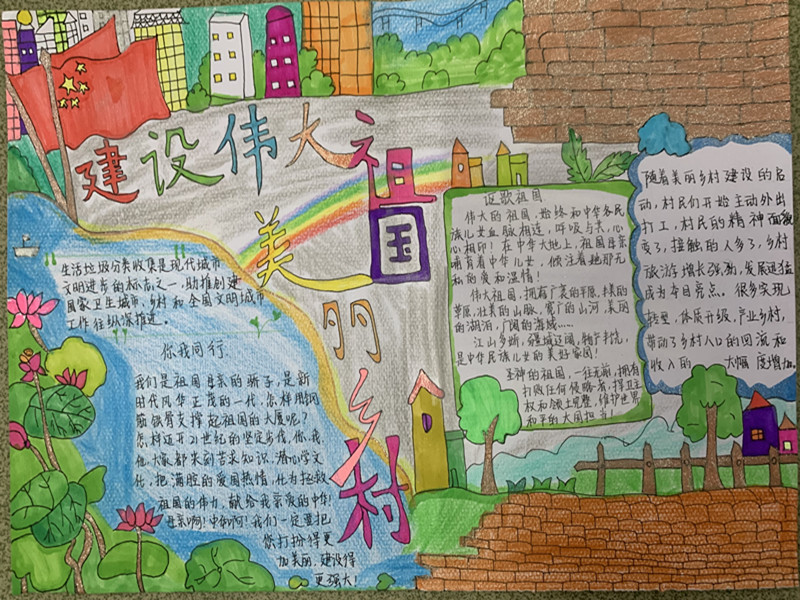 建设伟大祖国
美丽乡村
生活垃圾分类收集是现代城市
文明进步的标志之一,助推创建
国家卫生城市,乡村和全国文明城市
工作往纵深推进。
你我同行
我们是祖国母亲的骄子,是新
时代风华正茂的一代,怎样用钢
筋铁骨支撑起祖国的大厦呢?
怎样迈开21世纪的坚定步伐,你,我,
他大家都来刻苦求知识,潜心学文
化,把满腔的爱国热情,化为拯救
祖国的伟力,献给我亲爱的中华!
母亲啊!中华啊!我们一定要把
您打扮得更
加美丽,建设得
更强大!
讴歌祖国
伟大的祖国,始终和中华各民
族儿女血脉相连,呼吸与共,心
心相印!在中华大地上,祖国母亲
哺育着中华儿女,倾注着她那无
私的爱和温情!
伟大祖国,拥有广袤的平原,丰美的
草原,壮美的山脉,宽广的山河,美丽
的湖泊,广阔的海域……
江山多娇,疆域辽阔,物产丰饶,
是中华民族儿女的美好家园!
圣神的祖国,一往无前,拥有
打败任何侵略者,捍卫主
权和领土完整,维护世界
和平的大国担当!
随着美丽乡村建设的启
动,村民们开始主动外出
打工,村民的精神面貌
变了,接触的人多了,乡村
旅游增长强劲,发展迅猛
成为本目亮点。很多实现
转型,体质升级,产业乡村,
带动了乡村人口的回流和
收入的 大幅度增加。